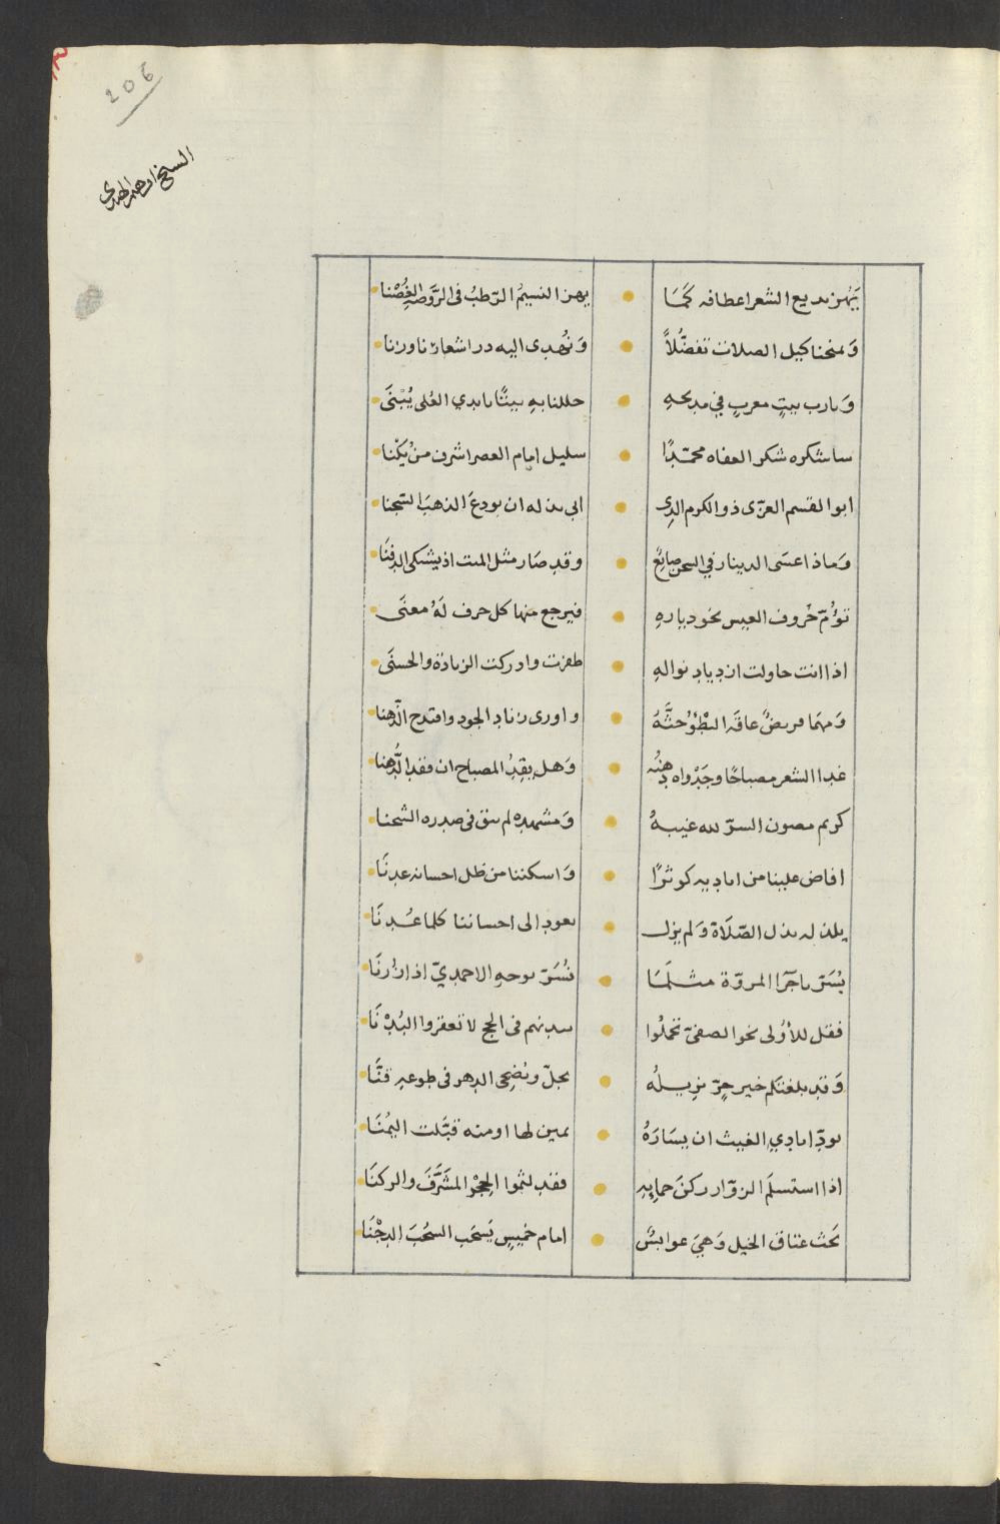 206
يَهُز بديع الشعر اعطافه كَمَا • يهز النسيمُ الرّطبُ فى الرَّوضه الغُصْنا
وَيمنحنا كيل الصلات تفضُّلاً • وَنُهْدى اليه در اشعارنا وزنا
وَيارب بيتٍ معربٍ في مديحهِ • حللنا بهِ بيتًا بايدي العُلى يُبْنَى
ساشكره شكر العفاه محمّدًا • سليل امام العصر اشرف منْ يكْنا
ابو القسم العزّى ذو الكرم الذى • ابى بذله ان يودعَ الذهبَ السّجنا
وَماذا عسَى الدينار في السجن صانِعُ • وقد صَار مثل الميت اذ يشتكى الدفنَا
تؤُمّ حُروف العيس نحو ديارهِ • فيرجع منها كل حرف لَهُ معنَى
اذا انت حاولت ازدياد نوالهِ • ظفرت وادركت الزيادة والحسنَى
وَمهَما قريضٌ عاقَه البُطْؤُ حثَّهُ • واورى زناد الجود واقتدح الذّهنا
غدا الشعر مصباحًا وجَدْواه دهنُه • وَهل يقِدُ المصباح ان فقد الدُّهنا
كريم مصون السرّ لله غيبهُ • وَمشهده لم يبق فى صدره الشحنا
افاض علينا من اياديه كوثرًا • وَاسكننا من ظل احسانه عدنَا
يلذ له بذل الصّلَاة وَلم يزل • يعود الى احساننا كلما عُدنَا
يُسَرّ باجرَا المروّة مثلَمَا • نُسَرّ بوجهِ الاحمديّ اذا زُرنَا
فقل للأُولى نحو الصفىّ تحمّلُوا • بدينهم فى الحج لا تعقروا البُدْنَا
وَقد بلغتكم خير حِرّ نزيلُه • يجلّ ويُضحى الدهر فى طوعه قنَّا
يودّ ايادي الغيث ان يسَارَهُ • يمين لها او منه قبَّلت اليُمنَا
اذا استسلَمَ الزوّار ركنَ حمايه • فقد لثموا الحِجْرَ المشَرَّفَ والركنَا
يَحث عتاق الخيل وَهيَ عوابسٌ • امام خميسٍ يَسحَب السُحُبَ الدجْنَا